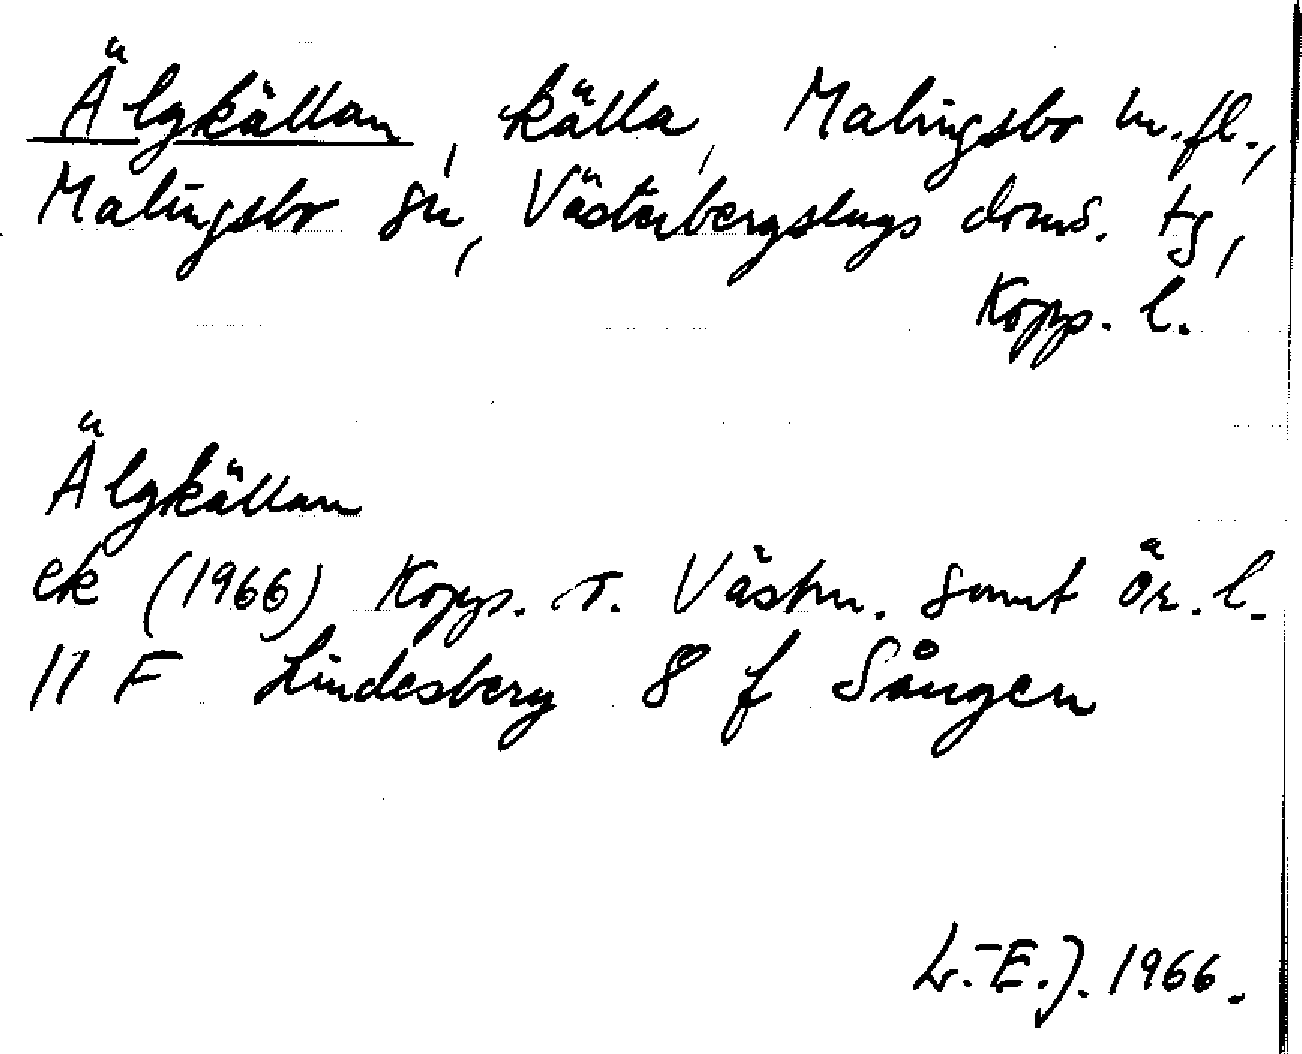 Älgkällan, källa, Malingsbo m.fl.,
Malingsbo sn, Västerbergslags doms. tg,
Kopp. l.
Älgkällan
ek (1966) Kopp. o. Västm. samt Ör. l.
11 F Lindesberg 8 f Sången
L.-E.J. 1966.